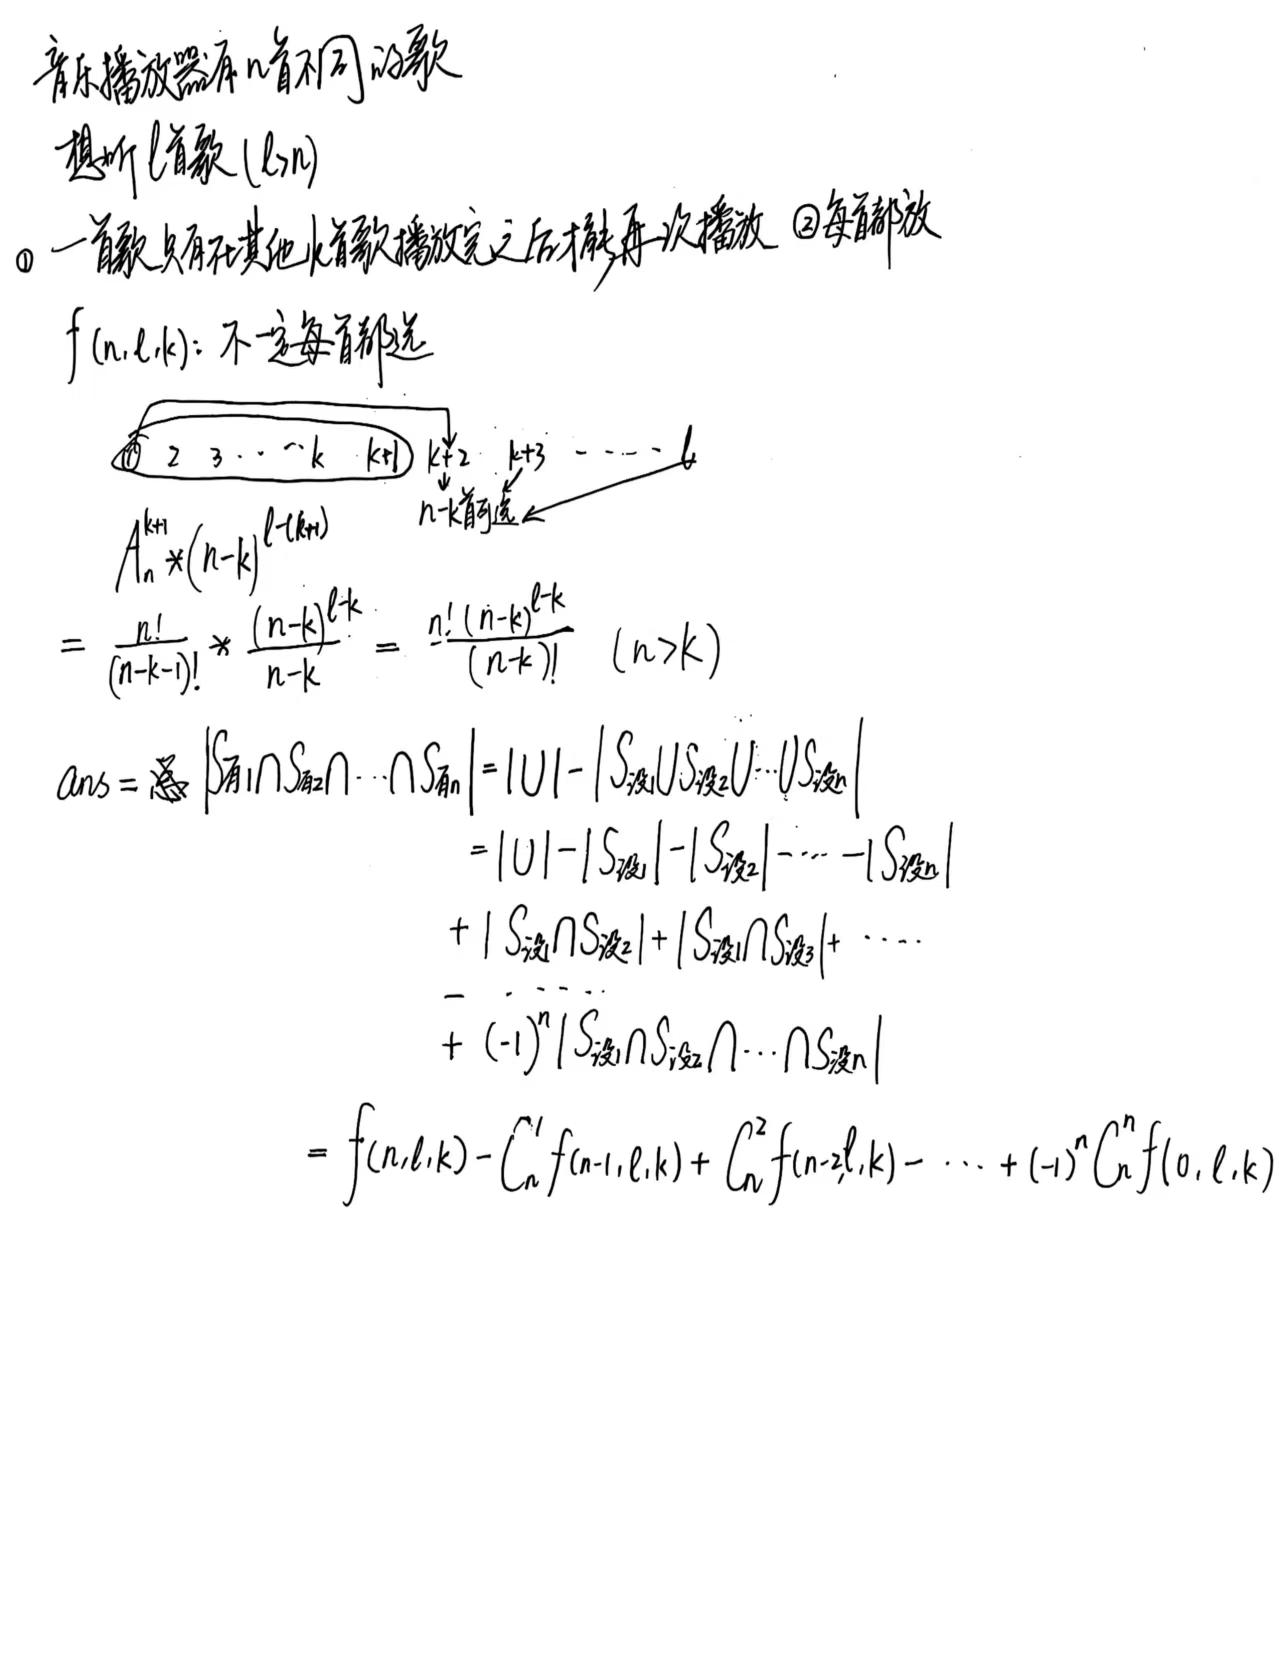 音乐播放器有n首不同的歌
想听l首歌(l>n)
① 一首歌只有在其他k首歌播放完之后才能再次播放 ②每首都放
f(n,l,k): 不一定每首都选
① 2 3 ⋯ k k+1 k+2 k+3 ⋯⋯ l
n-k首可选
A_n^{k+1} * (n-k)^{l-(k+1)}
= \frac{n!}{(n-k-1)!} * \frac{(n-k)^{l-k}}{n-k} = \frac{n!(n-k)^{l-k}}{(n-k)!} (n>k)
ans = |S_{有1}∩S_{有2}∩⋯∩S_{有n}| = |U| - |S_{没1}∪S_{没2}∪⋯∪S_{没n}|
= |U| - |S_{没1}| - |S_{没2}| - ⋯ - |S_{没n}|
+ |S_{没1}∩S_{没2}| + |S_{没1}∩S_{没3}| + ⋯⋯
- ⋯⋯
+ (-1)^n |S_{没1}∩S_{没2}∩⋯∩S_{没n}|
= f(n,l,k) - C_n^1 f(n-1,l,k) + C_n^2 f(n-2,l,k) - ⋯ + (-1)^n C_n^n f(0,l,k)